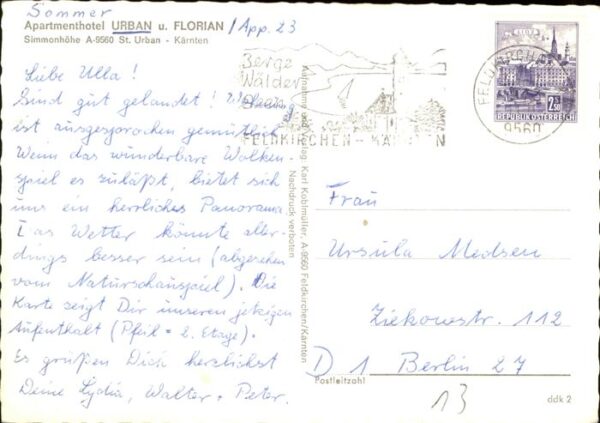 Sommer
Apartmenthotel URBAN u. FLORIAN / App. 23
Simmonhöhe A-9560 St. Urban - Kärnten
Liebe Ulla!
Sind gut gelandet! Wohnung
ist ausgesprochen gemütlich.
Wenn das wunderbare Wolken-
spiel es zuläßt, bietet sich
uns ein herrliches Panorama.
Das Wetter könnte aller-
dings besser sein (abgesehen
vom Naturschauspiel). Die
Karte zeigt Dir unseren jetzigen
Aufenthalt (Pfeil = 2. Etage).
Es grüßen Dich herzlichst
Deine Lydia, Walter + Peter.
Berge
Wälder
Seen
FELDKIRCHEN - KÄRNTEN
FELDKIRCHEN
9560
LINZ
2.50
REPUBLIK ÖSTERREICH
Aufnahme und Verlag: Karl Koblmüller, A-9560 Feldkirchen/Kärnten
Nachdruck verboten
Frau
Ursula Madsen
Ziekowstr. 112
D 1 Berlin 27
Postleitzahl
13
ddk 2